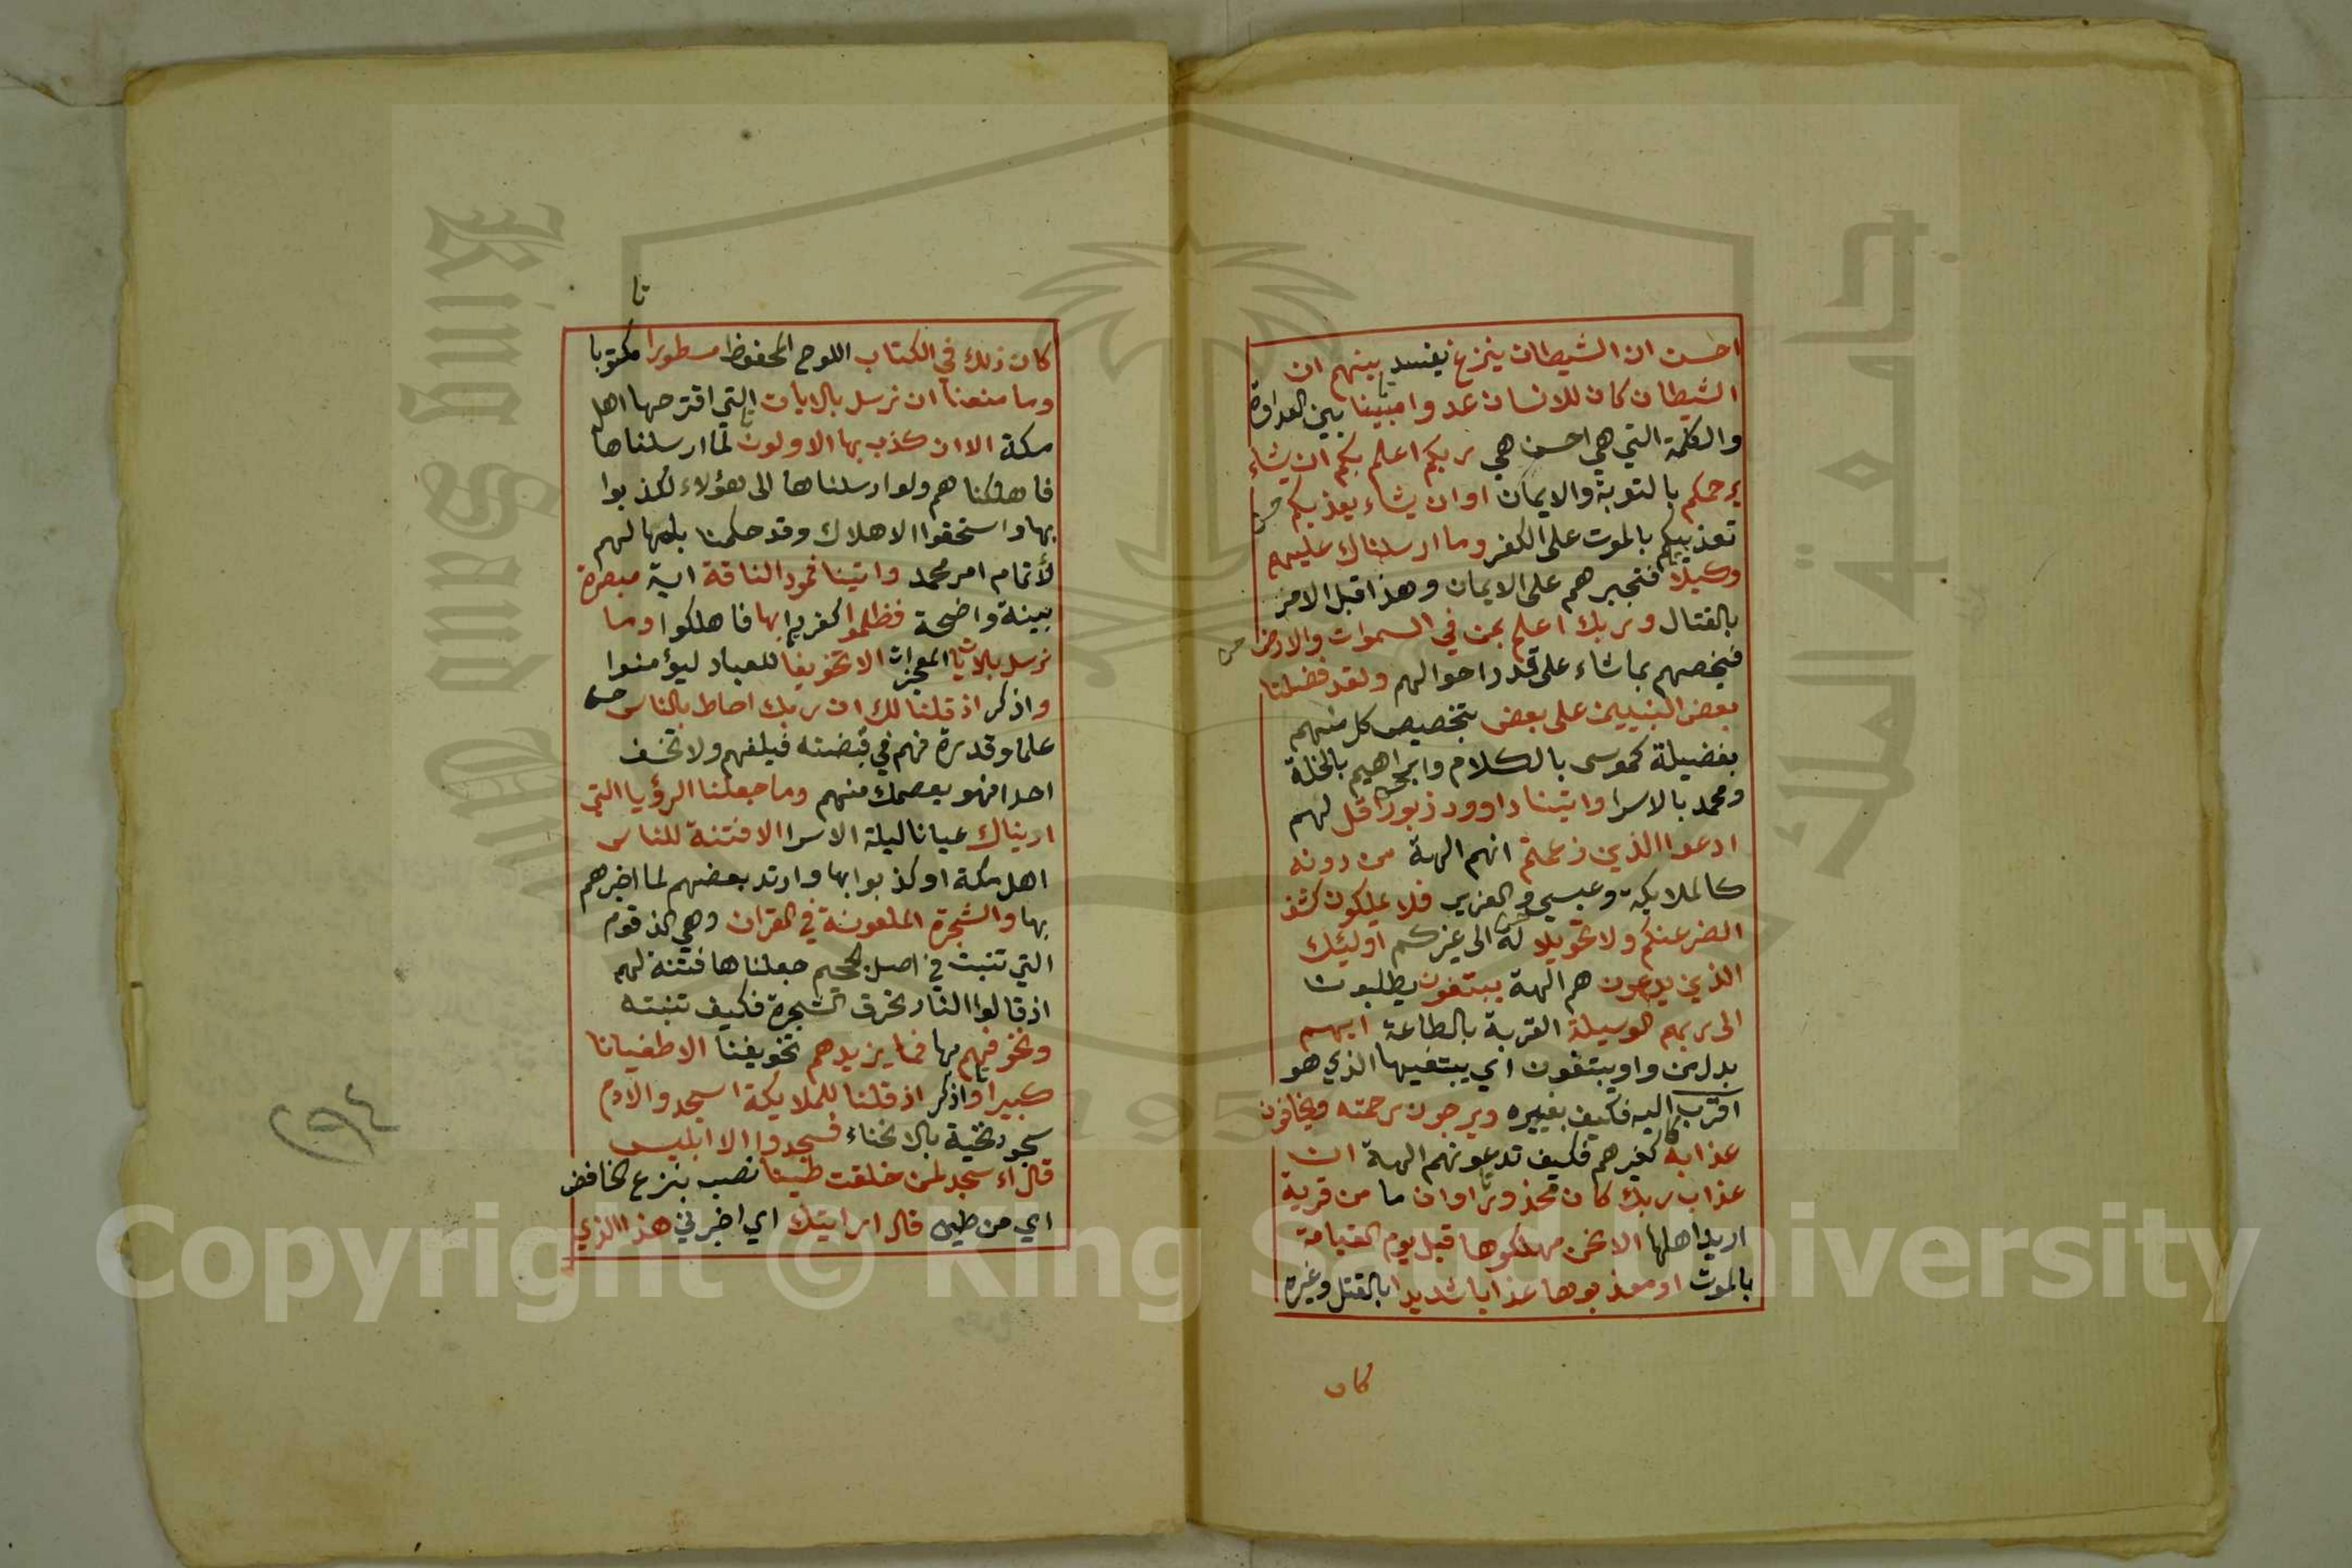 احسن ان الشيطان ينزغ يفسد بينهم ان
الشيطان كان للانسان عدوا مبينا بين العداوة
والكلمة التي هي احسن هي ربكم اعلم بكم ان يشاء
يرحمكم بالتوبة والايمان او ان يشاء يعذبكم
تعذيبكم بالموت على الكفر وما ارسلناك عليهم
وكيلا فتجبرهم على الايمان وهذا قبل الامر
بالقتال وربك اعلم بمن في السموات والارض
فيخصهم بما شاء على قدر احوالهم ولقد فضلنا
بعض النبيين على بعض بتخصيص كل منهم
بفضيلة كموسى بالكلام وابراهيم بالخلة
ومحمد بالاسرا واتينا داوود زبورا قل لهم
ادعوا الذين زعمتم انهم الهة من دونه
كالملايكة وعيسى والعزير فلا يملكون كشف
الضر عنكم ولا تحويلا له الى غيركم اوليك
الذين يدعون هم الهة يبتغون يطلبون
الى ربهم الوسيلة القربة بالطاعة ايهم
بدل من واو يبتغون اي يبتغيها الذي هو
اقرب اليه فكيف بغيره ويرجون رحمته ويخافون
عذابه كغيرهم فكيف تدعونهم الهة ان
عذاب ربك كان محذورا وان ما من قرية
اريد اهلها الا نحن مهلكوها قبل يوم القيامة
بالموت او معذبوها عذابا شديدا بالقتل وغيره
كان
كان ذلك في الكتاب اللوح المحفوظ مسطورا مكتوبا
وما منعنا ان نرسل بالايات التي اقترحها اهل
مكة الا ان كذب بها الاولون لما ارسلناها
فاهلكناهم ولو ارسلناها الى هؤلاء لكذبوا
بها واستحقوا الاهلاك وقد حكمنا بامهالهم
لاتمام امر محمد واتينا ثمود الناقة اية مبصرة
بينة واضحة فظلموا كفروا بها فاهلكوا وما
نرسل بالايات المعجزات الا تخويفا للعباد ليؤمنوا
واذكر اذ قلنا لك ان ربك احاط بالناس
علما وقدرة فهم في قبضته فبلغهم ولا تخف
احدا فهو يعصمك منهم وما جعلنا الرؤيا التي
اريناك عيانا ليلة الاسرا الا فتنة للناس
اهل مكة اذ كذبوا بها وارتد بعضهم لما اخبرهم
بها والشجرة الملعونة في القران وهي الزقوم
التي تنبت في اصل الجحيم جعلناها فتنة لهم
اذ قالوا النار تحرق الشجرة فكيف تنبته
ونخوفهم بها فما يزيدهم تخويفنا الا طغيانا
كبيرا واذكر اذ قلنا للملايكة اسجدوا لادم
سجود تحية بالانحناء فسجدوا الا ابليس
قال ءاسجد لمن خلقت طينا نصب بنزع الخافض
اي من طين قال ارايتك اي اخبرني هذا الذي
Copyright © King Saud University